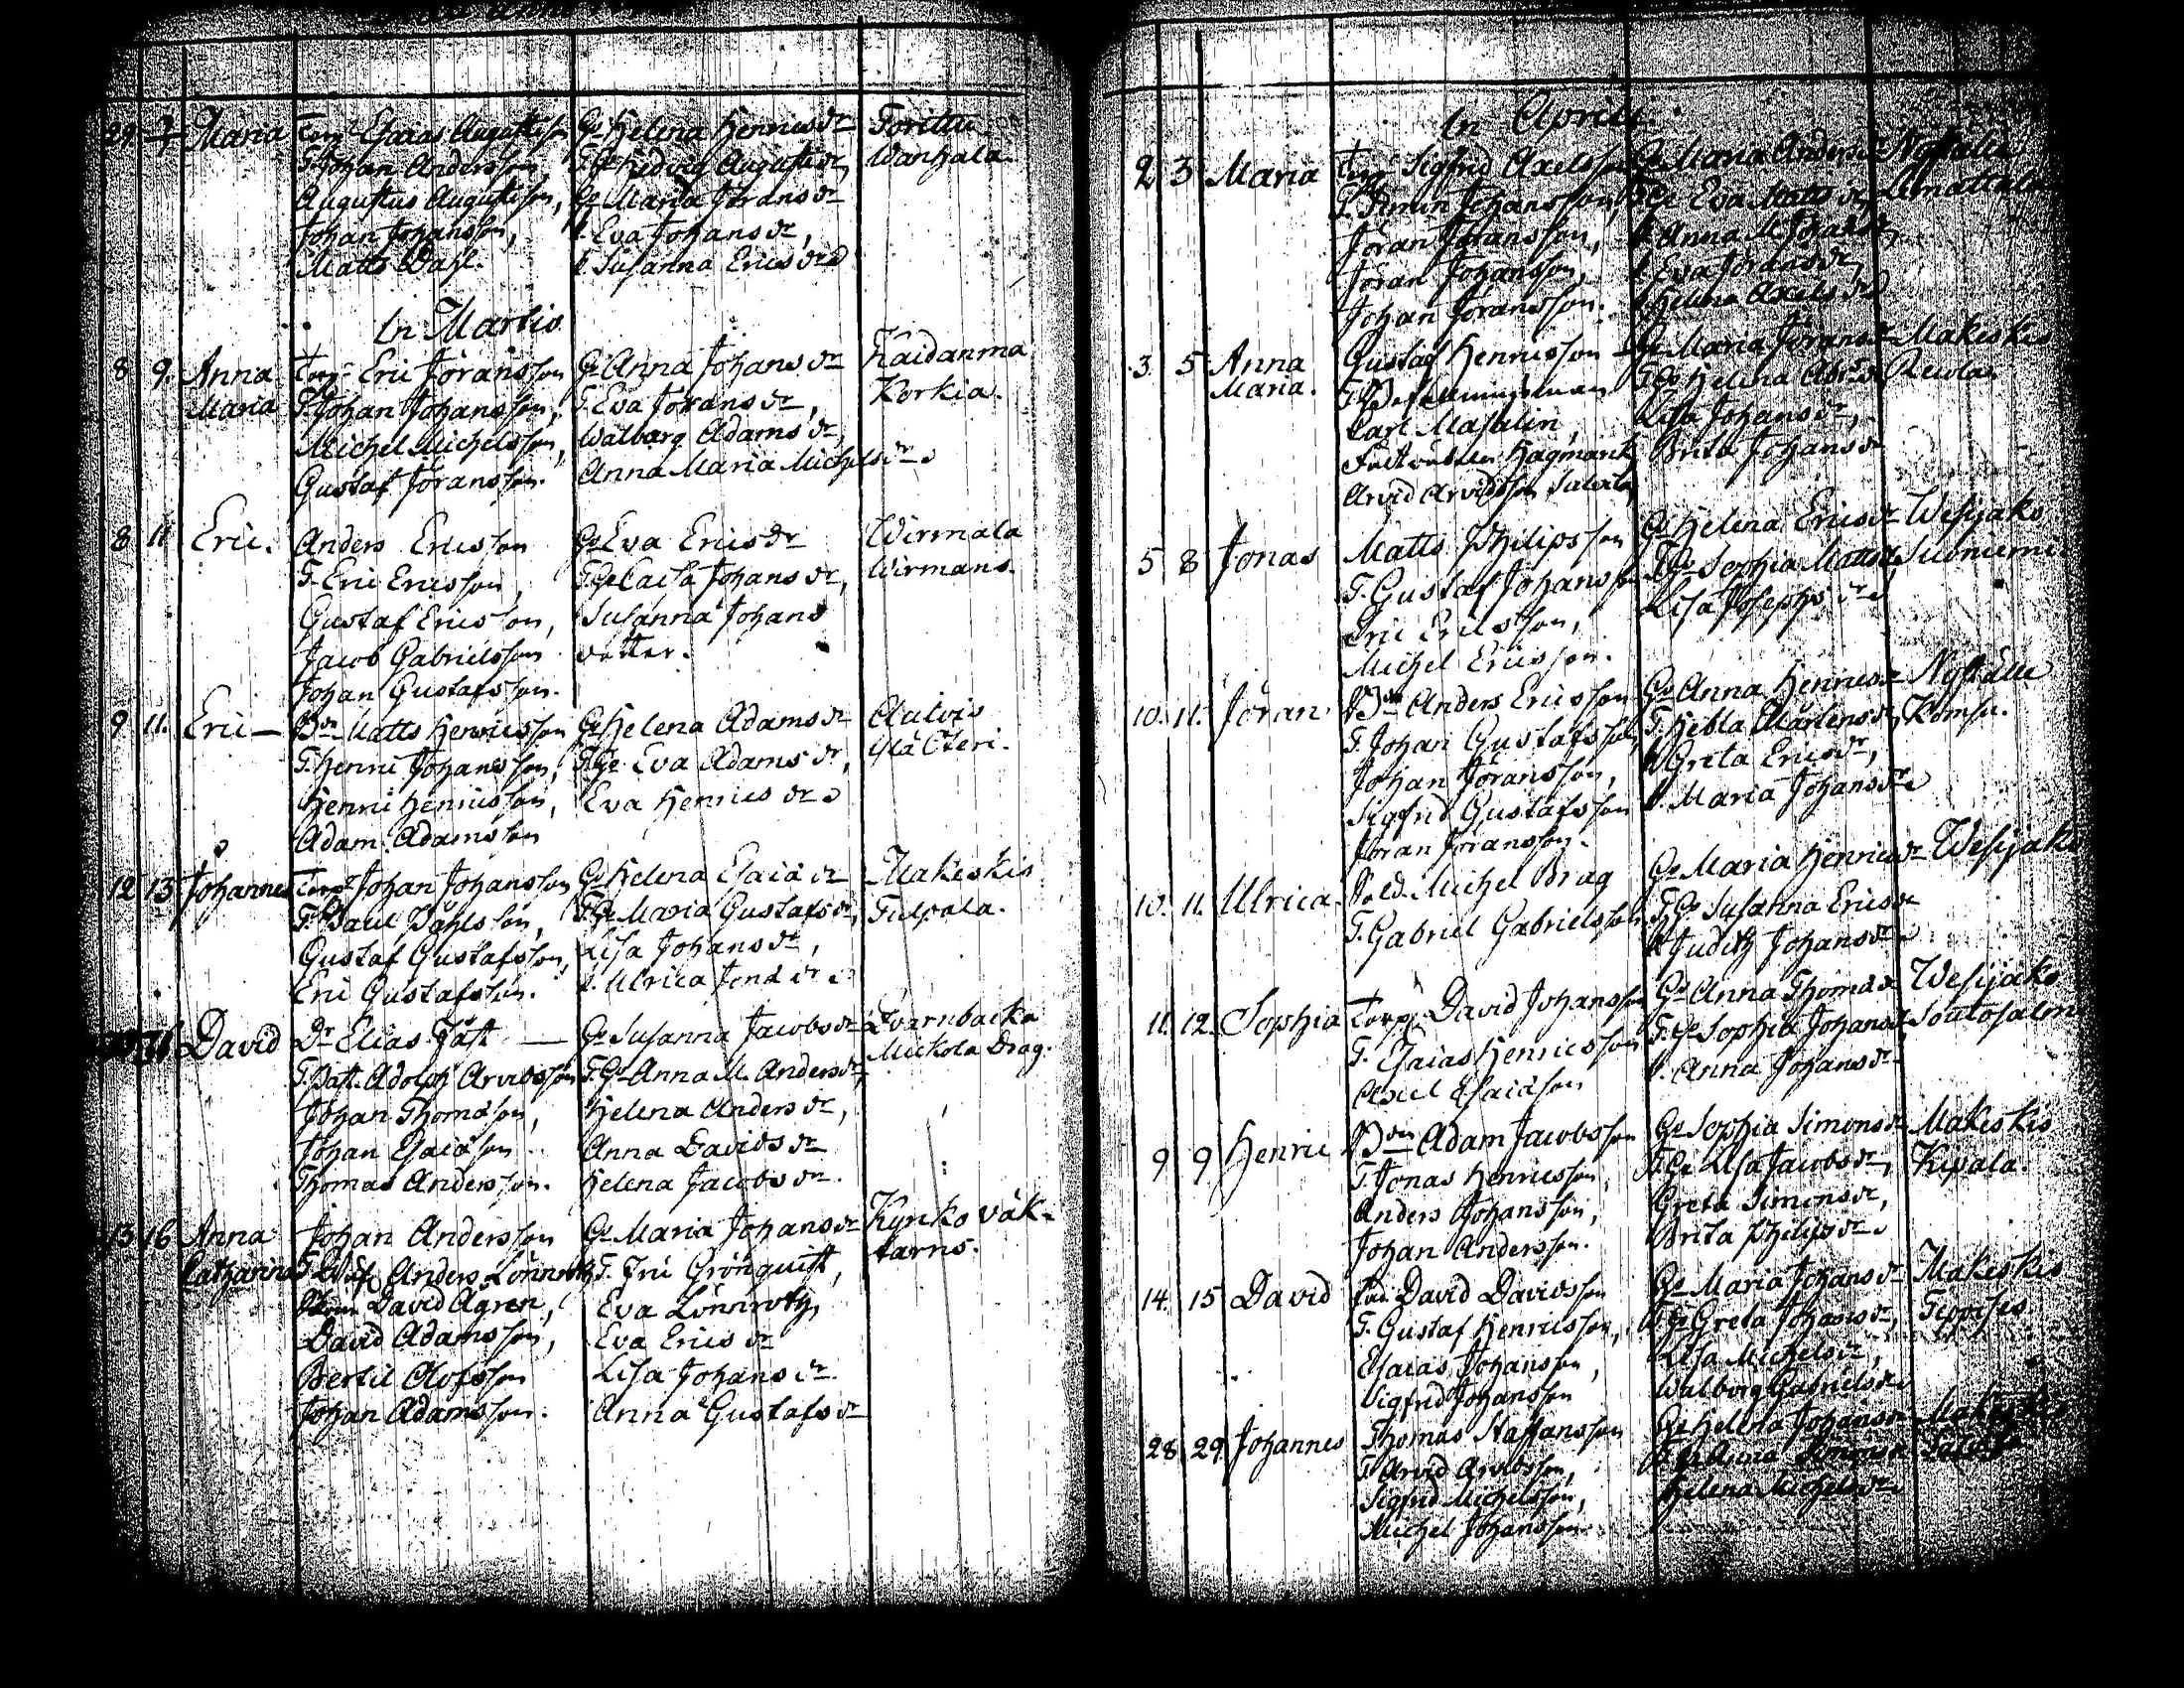 29. Maria Torp. Esaias Augustisson G. Helena Henricsdr Torittu
T. Johan Andersson, T. G. Hedvig Augustidr, Wanhala.
Augustus Augustisson, G. Maria Jöransdr
Johan Johansson, Eva Johansdr,
Matts Dahl. Susanna Ericsdr
In Martio
8 9. Anna Maria Torp. Eric Jöransson G. Anna Johansdr Kaidanma
T. Johan Johansson, T. Eva Jöransdr, Korkia.
Michel Michelsson, Walborg Adamsdr,
Gustaf Jöransson. Anna Maria Michelsdr
8 11 Eric. Anders Ericsson G. Eva Ericsdr Wirmala
T. Eric Ericsson, T. G. Caisa Johansdr, Wirmans.
Gustaf Ericsson, Susanna Johans
Jacob Gabrielsson dotter.
Johan Gustafsson.
9 11. Eric Bdn Matts Henricsson G. Helena Adamsdr
T. Henric Johansson, T. G. Eva Adamsdr,
Henric Henricsson, Eva Henricsdr
Adam Adamsson
12 13 Johannes Torp. Johan Johansson G. Helena Esaiædr Makeskis
T. Paul Påhlsson, T. G. Maria Gustafsdr,
Gustaf Gustafsson, Lisa Johansdr,
Eric Gustafsson. Ulrica Jonædr
David Dr. Elias Fält G. Susanna Jacobsdr Qvarnbacka
T. Adolph Arvidsson T. G. Anna M. Andersdr, Mickola Drag.
Johan Thomasson, Helena Andersdr,
Johan Esaiæson Anna Davidsdr
Thomas Andersson. Helena Jacobsdr.
13 16 Anna Johan Andersson G. Maria Johansdr Kyrko väk-
Catharina Anders Lönnroth, T. Fru Grönquist, tarns.
David Agren, Eva Lönnroth,
David Adamsson, Eva Ericsdr
Bertil Olofsson Lisa Johansdr.
Johan Adamsson. Anna Gustafsdr
In Aprili.
2 3 Maria Torp. Sigfrid Axelsson G. Maria Andersdr
T. Simon Johansson, G. Eva Mattsdr
Jöran Jöransson, Anna M. Johansdr,
Jöran Johansson, Eva Jöransdr,
Johan Jöransson. Helena Axelsdr
3 5 Anna Gustaf Henricsson G. Maria Jöransdr Makeskis
Maria. T. Befallningsman T. G. Helena Abr.dr
Carl Masalin, Lisa Johansdr,
Hagmark, Brita Johansdr
Arvid Arvidsson
5 8 Jonas Matts Philipsson G. Helena Ericsdr Wesijako
T. Gustaf Johansson T. G. Sophia Mattsdr, Suoniemi
Eric Ericsson, Lisa Josephsdr
Michel Ericsson.
10. 11. Jöran Bdn Anders Ericsson G. Anna Henricsdr
T. Johan Gustafsson, T. Hebla Mårtensdr,
Johan Jöransson, Greta Ericsdr,
Sigfrid Gustafsson Maria Johansdr
Jöran Jöransson.
10. 11. Ulrica. Sold. Michel Brag G. Maria Henricsdr Wesijako
T. Gabriel Gabrielsson T. G. Susanna Ericsdr
Judith Johansdr
11. 12. Sophia Torp. David Johansson G. Anna Thomædr Wesijako
T. Esaias Henricsson T. G. Sophia Johansdr,
Axel Esaiæson Anna Johansdr
9 9 Henric Bdn Adam Jacobsson G. Sophia Simonsdr Makeskis
T. Jonas Henricsson, T. G. Lisa Jacobsdr,
Anders Johansson, Greta Simonsdr,
Johan Andersson. Brita Philipsdr
14. 15 David David Davidsson G. Maria Johansdr Makeskis
T. Gustaf Henricsson, G. Greta Johansdr,
Esaias Johansson, Lisa Michelsdr,
Sigfrid Johansson Walborg Gabrielsdr
28. 29. Johannes Thomas Staffansson G. Helena Johansdr
T. Arvid Arvidsson, Anna
Sigfrid Michelsson, Helena Michelsdr
Michel Johansson